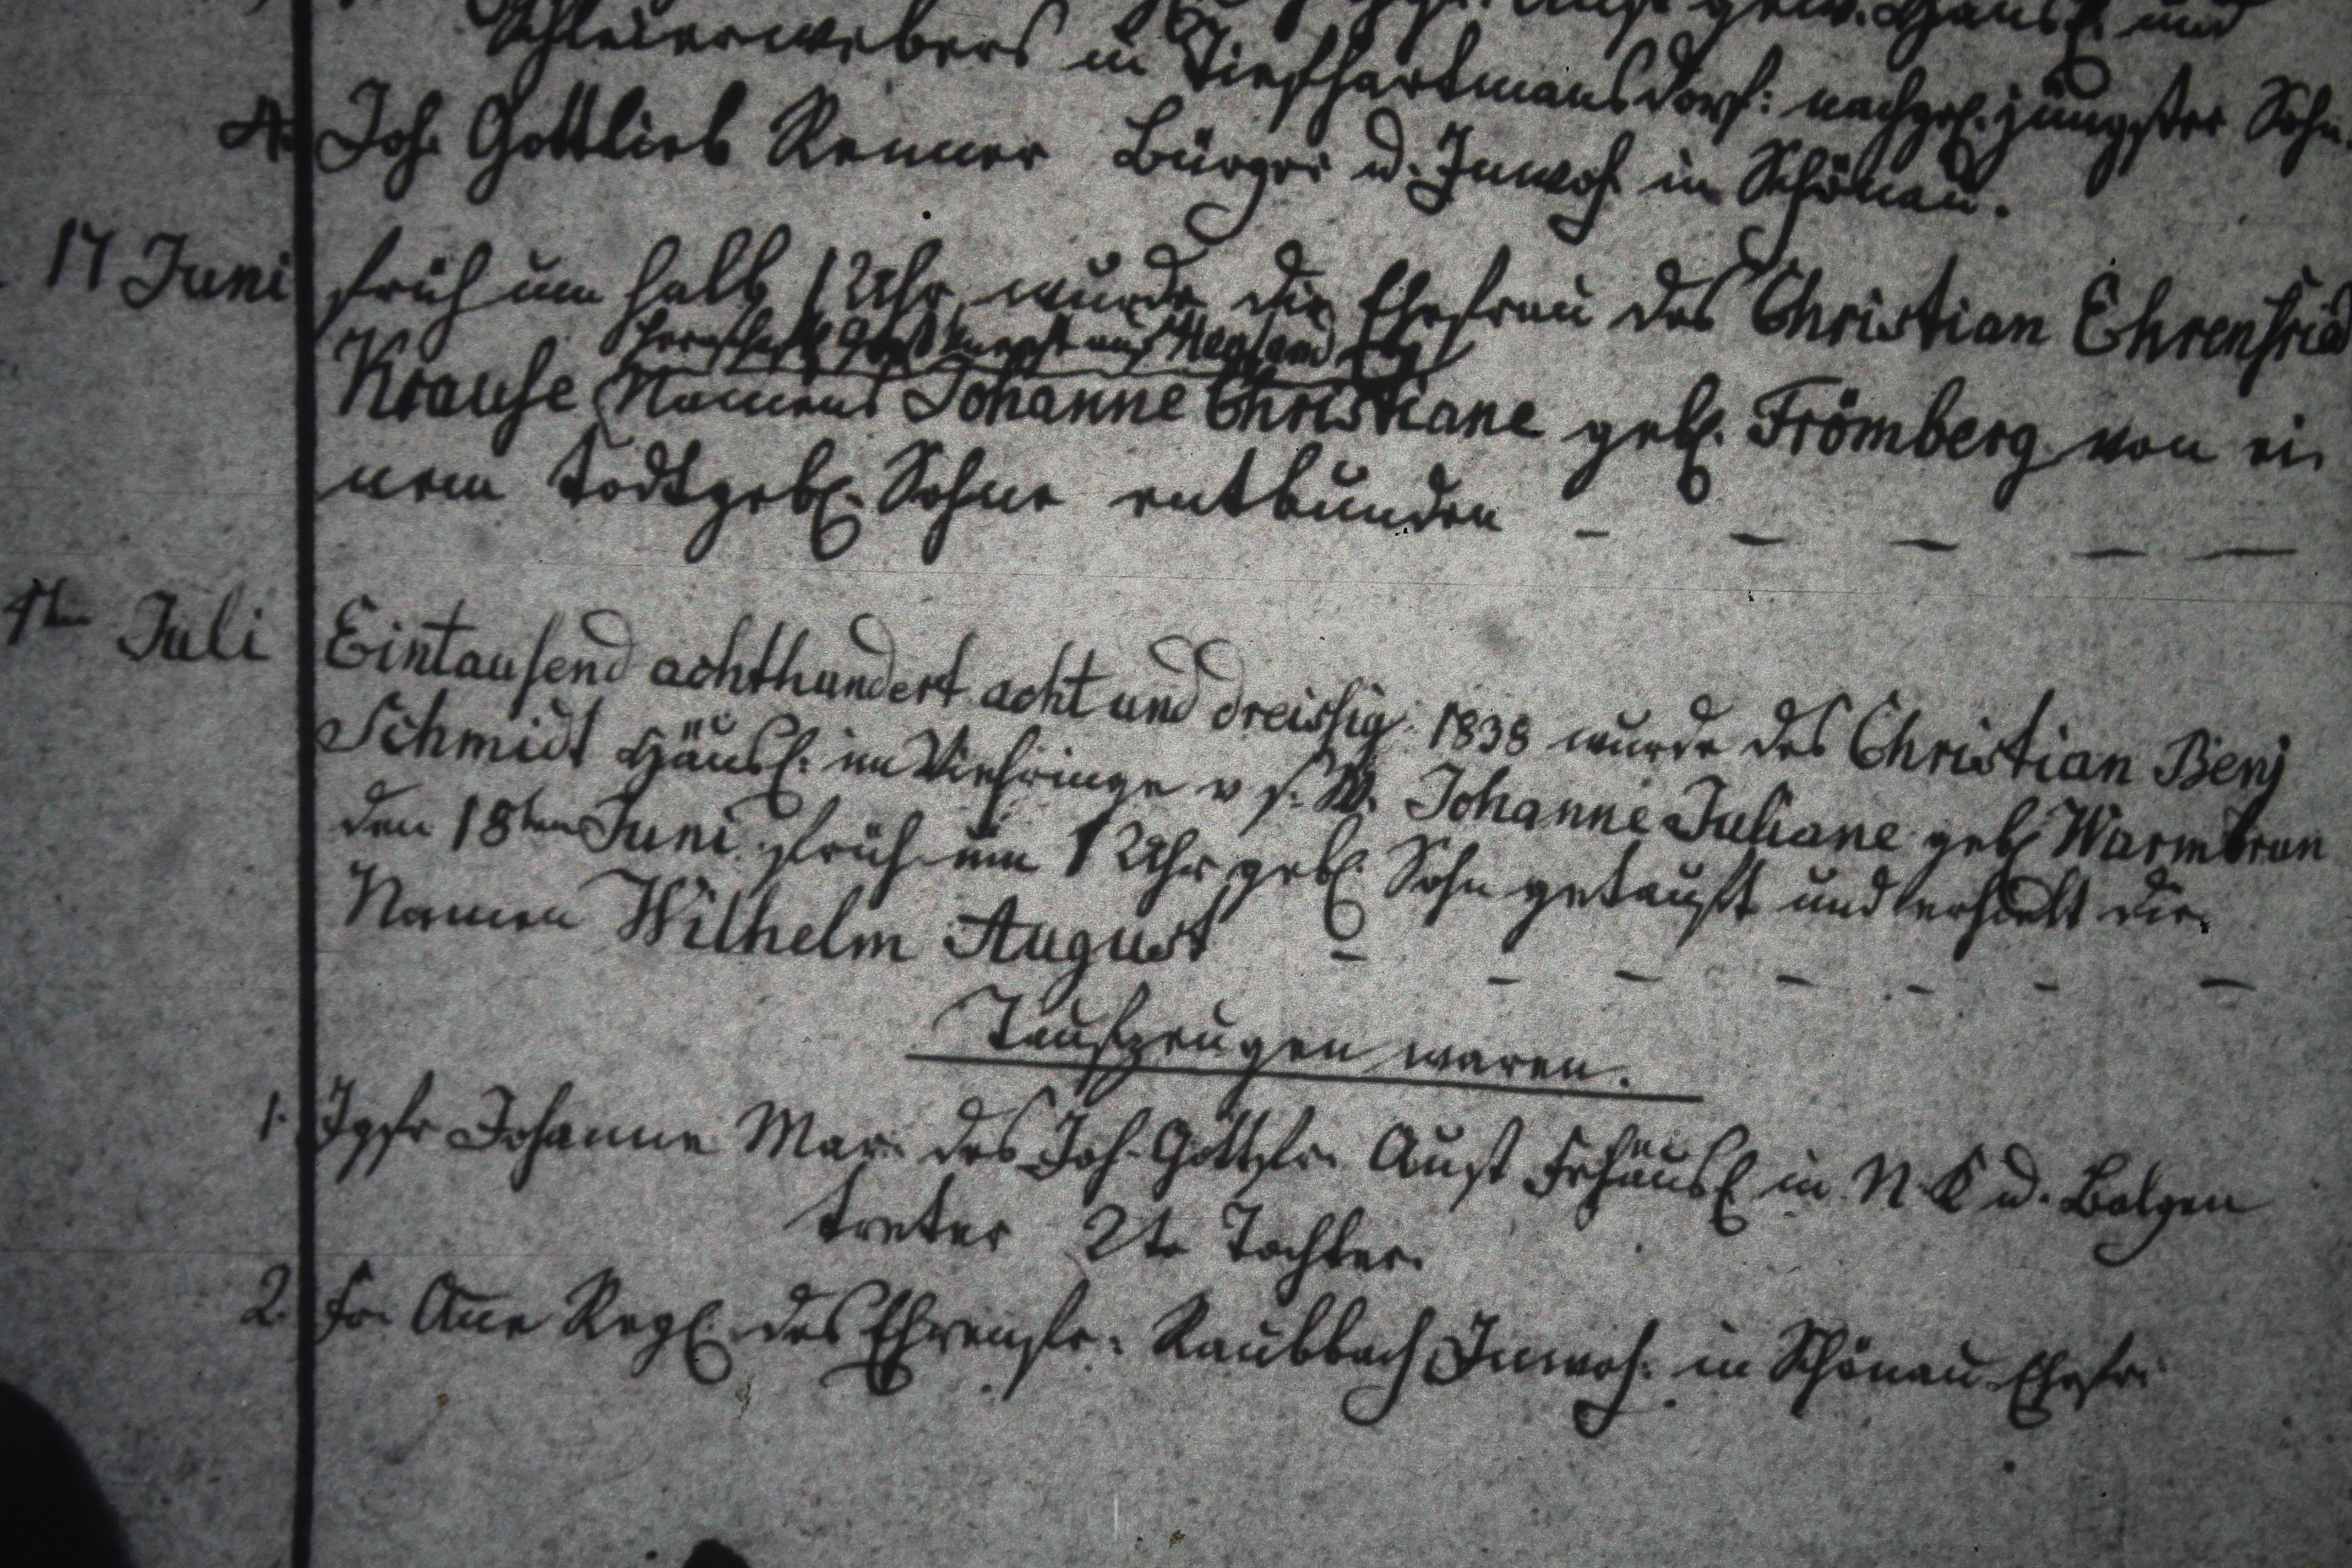 gew. Häusl. und
Schleierwebers in Tiefhartmansdorf: nachgel. jüngster Sohn.
4. Joh. Gottlieb Renner Bürger u. Inwoh. in Schönau.
17 Juni früh um halb 1 Uhr, wurde die Ehefrau des Christian Ehrenfried
Krause Namens Johanne Christiane geb. Frömberg von ei
nem todtgeb. Sohne entbunden - - - - -
1ten Juli Eintausend achthundert acht und dreissig 1838 wurde des Christian Benj
Schmidt Häusl: im Viehringe v s. W. Johanne Juliane geb Warmbrun
den 18ten Juni früh um 1 Uhr geb. Sohn getauft und erhielt die
Namen Wilhelm August - - - - - - -
Taufzeugen waren.
1. Jgfr Johanne Mar. des Joh. Gottfr. Aust Freihäusl in N. K u. Balgen
treter 2te Tochter.
2. Fr. Ane Regl des Ehrenfr: Raubbach Inwoh. in Schönau Ehefr: